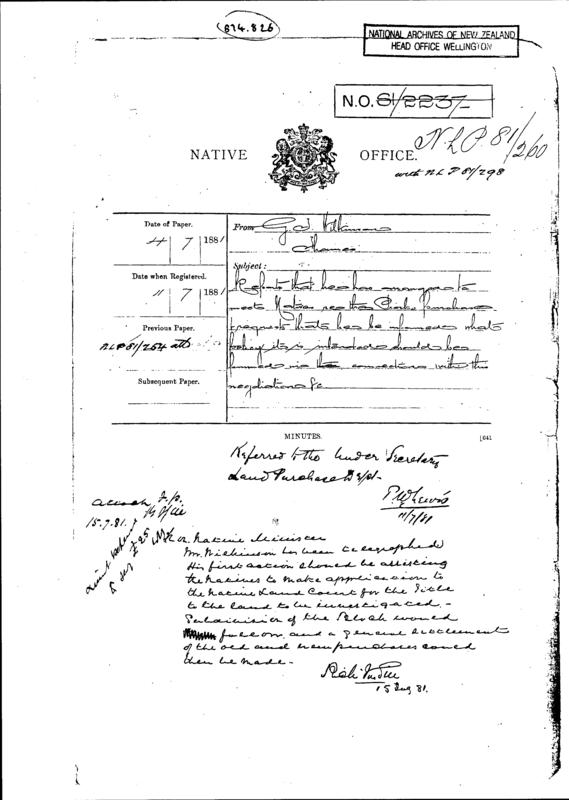 874.826
NATIONAL ARCHIVES OF NEW ZEALAND
HEAD OFFICE WELLINGTON
N.O. 81/2237
NATIVE OFFICE.
NLP 81/260
with NLP 81/298
Date of Paper.
4 7 1881
From G. T. Wilkinson
Thames
Date when Registered.
11 7 1881
Subject:
Reports that he has arranged to
meet Natives re the Purchase
requests that he be informed what
policy it is intended should be
in the connection with the
negotiations &c
Previous Paper.
NLP 81/254
Subsequent Paper.
MINUTES.
[641
Referred to the Under Secretary
Land Purchase Dept.
T W Lewis
11/7/81
15.7.81.
Hon. Native Minister
Mr. Wilkinson has been telegraphed
His first action should be assisting
the Natives to make application to
the Native Land Court for the Title
to the land to be investigated. -
Subdivision of the Block would
follow and a general settlement
of the old and new purchases could
then be made -
15 Aug 81.